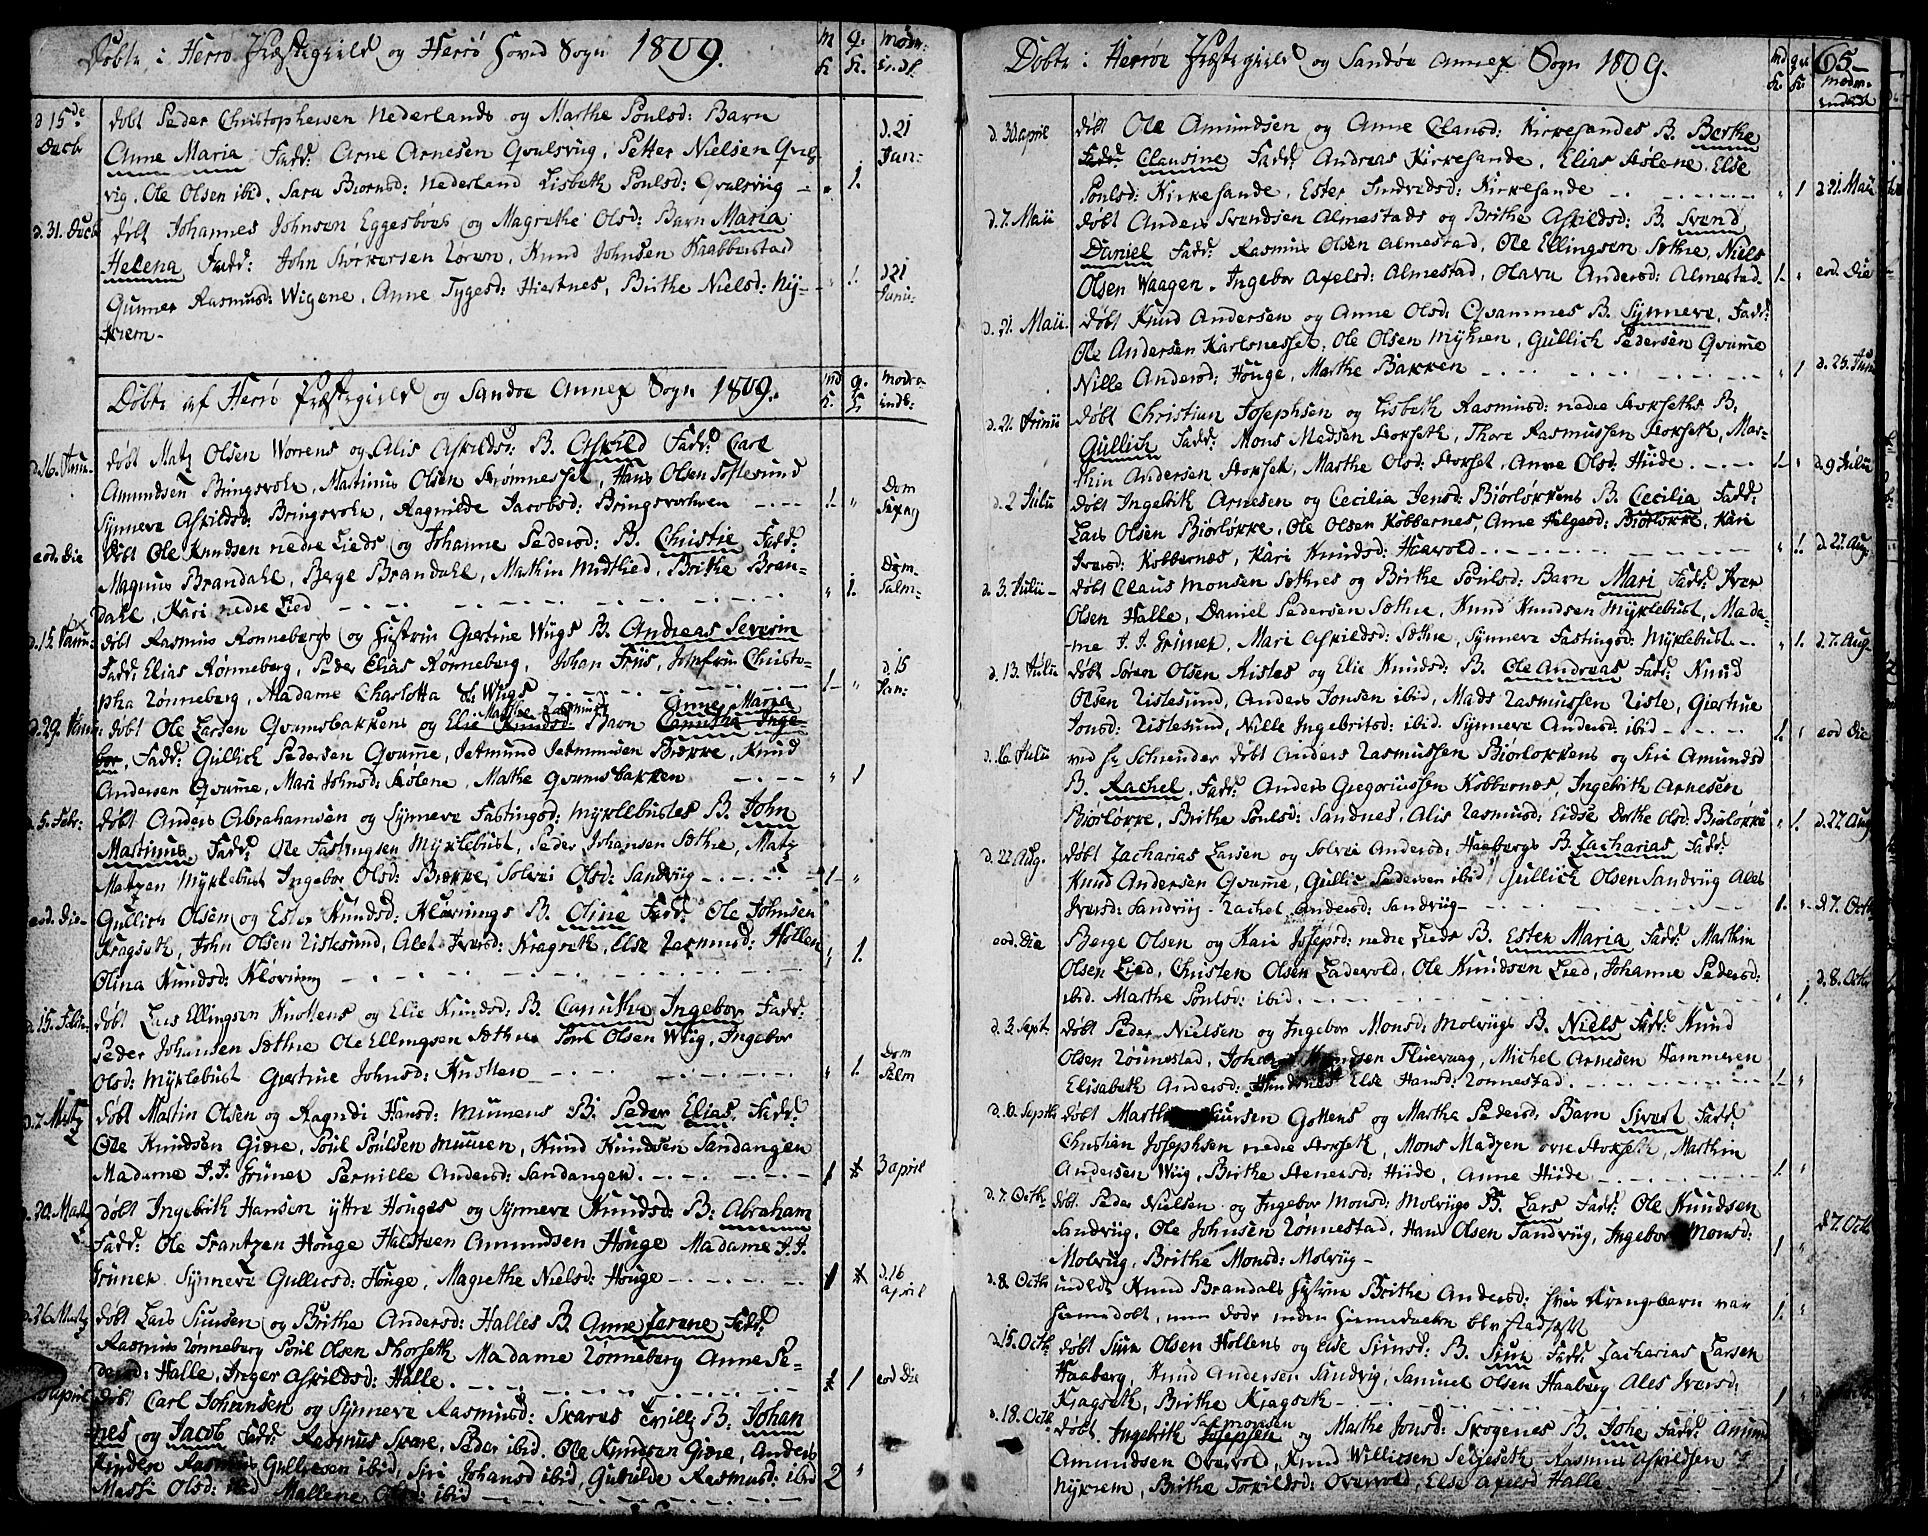 Døbte i Herrø Præstegield og Herrø Hoved Sogn 1809.
m K. q. K. Mødr. indl.
d. 15de Decb. døbt Peder Christophersen Nederlands og Marthe Poulsd: Barn
Anne Maria Fadd: Arne Arnesen Qvalsvug, Petter Nielsen Qval- d. 21 Jan:
vig, Ole Olsen ibid, Sara Biornsd: Nederland Lisbeth Poulsd: Qvalsvug - " 1.
d. 31. Decb døbt Johannes Johnsen Eggesbøes og Magrethe Olsd: Barn Maria
Helena Fadd: John Størkersen Toren, Knud Johnsen Kraabberstad
Gunner Rasmusd: Wigene, Anne Tygesd: Hiertnes, Birthe Nielsd: Ny- " 1. d. 21 Janu:
krem.
Døbte af Herrø Præstegield og Sandøe Annex Sogn 1809.
md K. q. K. Modra indl:
d. 16. Janu. døbt Matz Olsen Worrens og Alis Askildsd: B. Askild Fadd: Carl
Amundsen Bringsvohr, Martinus Olsen Strømnesset, Hans Olsen Søflesund
Synneve Askildsd: Bringsvohr, Ragnilde Jacobsd: Bringsvorhen 1. " Dom Sexag
eod. Die døbt Ole Knudsen nedre Lieds og Johanne Pedersd: B. Christie Fadd:
Magnus Brandahl, Berge Brandahl, Mathin Midtlied, Brithe Bran-
dahl, Kari nedre Lied " 1. Dom. Palm-
d. 15. Janu: døbt Rasmus Rønnebergs og Hustrin Giertine Wugs B. Andreas Severin
Fadd: Elias Rønneberg, Peder Elias Rønneberg, Johan Friis, Johfrue Christo-
pha Rønneberg, Madame Charlotta Wugs 1 " d. 15 Jan:
d. 29 Janu: døbt Ole Larsen Qvamsbakkens og Elie Knudsd: Mathlae Rasmusd Barn Canutha Inge Anne Maria
bor, Fadd: Gullich Pedersen Qvame, Setmund Setmunsen Bække, Knud
Andersen Qvame, Mari Johnsd: Stolene, Mathe Qvamsbakken " 1
d. 5. Febr: døbt Anders Abrahamsen og Synneve Fastingsd: Myklebustes B. John
Martinus Fadd: Ole Fastingsen Myklebust, Peder Johansen Sæthre, Matz
Matzen Myklebust Ingebor Olsd: Bække, Solvei Olsd: Sandvug 1 "
eod. Die Gullich Olsen og Ester Knudsd: Kløvnings B. Oline Fadd: Ole Johnsen
Kragseth, John Olsen Ristesund, Alet Iversd: Kragseth, Else Rasmusd: Hollen " 1.
Olina Knudsd: Kløvning
d. 15. Febr døbt Lars Ellingsen Knottens og Elie Knudsd: B. Canutha Ingebor Fadd:
Peder Johansen Sæthre Ole Ellingsen Sæthre Poul Olsen Wiig, Ingebor
Olsd: Myklebust Giertine Johnsd: Knotten " 1. Dom Palm
d. 2 Martz døbt Martin Olsen og Ragndi Hansd: Munens B. Peder Elias. Fadd:
Ole Knudsen Giære, Poul Poulsen Muuren, Knud Knudsen Sandangen
Madame J. J. Grüner Pernille Andersd: Sandangen. 1 3 april
d. 20. Martz døbt Ingebrith Hansen yttre Houges og Synneve Knudsd: B: Abraham
Fadd: Ole Frantzen Houge Halstein Amundsen Houge Madame J. J.
Grüner. Synneve Gulliesd: Houge, Magrethe Nielsd: Houge 1 d. 16 april
d. 26 Martz døbt Lars Siursen og Brithe Andersd: Halles B. Anne Jørene Fadd:
Rasmus Rønneberg Poul Olsen Thorseth Madame Rønneberg Anne Pe-
dersd: Halle, Inger Askildsd: Halle. 1 eod Die
april døbt Carl Johansen og Synneve Rasmusd: Skares Tvillg B: Johan
nes og Jacob Fadd: Rasmus Skare, Peder ibid, Ole Knudsen Giære, Anders
Gulliesen ibid, Siri Johansd ibid, Guhulde Rasmusd: ibid 2 "
Massi Olsd: ibid Mallene Olsd: ibid

Døbte i Herrøe Præstegield og Sandøe Annex Sogn 1809. 65
md K. qv. K. Mødr. indledt
d. 30 april døbt Ole Amundsen og Anne Clausd: Kirkesandes B. Berthe
Fadd: Clausine Fadd: Andreas Kirkesande, Elias Stølene, Else
Poulsd: Kirkesande, Ester Indredsd: Kirkesande " 1 d 21. Maii
d. 7. Maii døbt Anders Svendsen Almestads og Brithe Askildsd: B. Svend
Daniel Fadd: Rasmus Olsen Almestad, Ole Ellingsen Sæthre, Niels
Olsen Waagen. Ingebor Axelsd: Almestad, Olava Andersd: Almestad. 1. " eod Die
d. 21. Maii. døbt Knud Andersen og Anne Olsd: Qvammes B. Synneve. Fadd:
Ole Andersen Karlsnesset, Ole Olsen Myhren, Gullich Pedersen Qvame
Nille Andersd: Houge, Marthe Bakken " 1 d. 25. Juni
d. 21 Junii døbt Christian Josephsen og Lisbeth Rasmusd: nedre Storseths B.
Gullich Fadd: Mons Madsen Storseth, Thore Rasmussen Storseth, Mar-
thin Andersen Storset, Marthe Olsd: Storset, Anne Olsd: Hiide. 1. " d 9 Julii
d. 2 Julii døbt Ingebrith Arnesen og Cecilia Jensd: Biørløkkens B. Cecilia Fadd:
Lars Olsen Biørløkke, Ole Olsen Kobbernes, Anne Helgesd: Biørløkke, Kari
Iversd: Kobbernæs, Kari Knudsd: Haavold " 1. d. 27. Aug
d. 3. Julii døbt Claus Monsen Sæthres og Birthe Poulsd: Barn Mari Fadd: Iver
Olsen Halle, Daniel Pedersen Sæthre, Knud Knudsen Myklebust, Mada-
me J. J. Grüner, Mari Askildsd: Sæthre, Synneve Fastingsd: Myklebust. " 1. d. 7. Aug
d. 13. Julii døbt Søren Olsen Ristes og Elie Knudsd: B. Ole Andreas Fadd: Knud
Olsen Ristesund, Anders Jonsen ibid, Mads Rasmussen Riste, Giertrue
Jonsd: Ristesund, Nille Ingebritsd: ibid. Synneve Andersd: ibid 1. " eod Die
d. 16 Julii ved Hr Schneider døbt Anders Rasmussen Biorløkkens og Siri Amundsd
B. Rachel, Fadd: Anders Gregoriussen Kobbernæs, Ingebrith Arnesen
Biorløkke, Brithe Poulsd: Sandnes, Alis Rasmusd: Eidse Dorthe Olsd: Biorløkke " 1. d. 27 Aug
d. 22 Aug. døbt Zacharias Larsen og Solvei Andersd: Haabergs B. Zacharias Fadd:
Knud Andersen Qvame, Gullic Pedersen ibid Gullich Olsen Sandvug Ales
Iversd: Sandvug - Rachel Andersd: Sandvug 1. " d 7. Octb
eod. Die Berge Olsen og Kari Josepsd: nedre Lieds B. Ester Maria Fadd: Marthin
Olsen Lied, Christen Olsen Ladevold, Ole Knudsen Lied, Johanne Pedersd:
ibid. Marthe Poulsd: ibid. " 1. d. 8. Octb
d. 3 Sept. døbt Peder Nielsen og Ingebor Monsd: Molvugs B. Niels Fadd: Knud
Olsen Rønnestad, Johan Knudsen Fluevaag, Michel Arnesen Hammeren
Elisabeth Andersd: Else Hansd: Rønnestad. 1. "
d. 10. Septb døbt Marth Siursen Gottens og Martha Pedersd: Barn Sivert Fadd:
Christian Josephsen nedre Storseth, Mons Madzen øvre Storseth, Marthin
Andersen Wiig, Brithe Stenersd: Hiide, Anne Hiide 1. "
d. 7. Octb døbt Peder Nielsen og Ingebor Monsd: Molvugs B. Lars Fadd: Ole Knudsen
Sandvug, Ole Johnsen Rønnestad, Hans Olsen Sandvug, Ingebor Monsd: d 7. Octb
Molvug, Brithe Monsd: Molvug 1 "
d. 8. Octb indledt Knud Brandals Hustrue Brithe Andersd: hvis Drengebarn var
hiemedøbt, men døde inden hiemedaaben blev stadfæstt 1. "
d. 15. Octb. døbt Siur Olsen Hollens og Else Simsd: B. Siur Fadd: Zacharias Larsen
Haaberg, Knud Andersen Sandvig, Samuel Olsen Haaberg Ales Iversd:
Kragseth, Birthe Kragseth 1 "
d. 18. Octb døbt. Ingebrith Josepsen Salmonsen og Marthe Jonsd: Skogenes B. Johe Fadd: Amund
Amundsen Overvold, Knud Williksen Setjeseth Rasmus Askildsen
Nykrem, Birthe Torkildsd: Overvold, Else Axelsd Halle